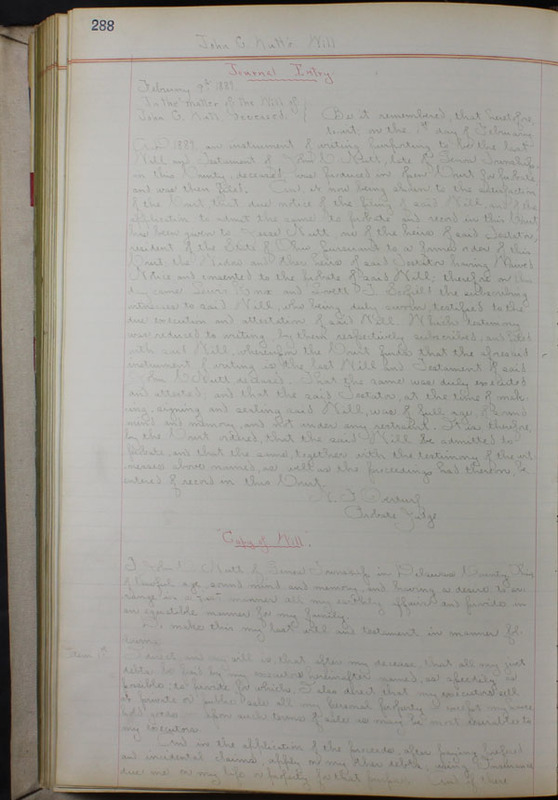 288
John G. Nutt's Will
Journal Entry
February 9th 1889.
In the matter of the Will of
John G. Nutt, Deceased. } Be it remembered, that heretofore,
towit: on the 1st day of February
A.D. 1889, an instrument of writing purporting to be the last
Will and Testament of John G. Nutt, late of Township
in this County, deceased, was produced in open Court for probate
and was then filed. And it now being shown to the satisfaction
of the Court that due notice of the filing of said Will, and of the
application to admit the same to probate and record in this Court
has been given to Jesse Nutt, one of the heirs of said Testator,
resident of the State of Ohio, pursuant to a former order of this
Court, the Widow and other heirs of said Testator having Waived
Notice and consented to the probate of said Will; therefore on this
day came and the subscribing
witnesses to said Will, who being duly sworn, testified to the
due execution and attestation of said Will. Which testimony
was reduced to writing, by them respectively subscribed, and filed
with said Will, whereupon the Court finds that the aforesaid
instrument of writing is the last Will and Testament of said
John G. Nutt deceased. That the same was duly executed
and attested, and that the said Testator, at the time of mak-
ing, signing and sealing said Will, was of full age, of sound
mind and memory, and not under any restraint. It is therefore,
by the Court ordered, that the said Will be admitted to
Probate, and that the same, together with the testimony of the wit-
nesses above named, as well as the proceedings had therein, be
entered of record in this Court.
Probate Judge
"Copy of Will".
I John G. Nutt of Township in Delaware County Ohio
of lawful age sound mind and memory and having a desire to ar-
range in a just manner all my earthly affairs and provide in
an equitable manner for my family
do make this my last will and testament in manner fol-
lowing
Item 1st I direct and my will is that after my decease, that all my just
debts be paid by my executors hereinafter named, as speedily as
possible; to provide for which, I also direct that my executors sell
at private or public sale all my personal property except my house
hold goods upon such terms of sale as may be most desirable to
my executors.
And in the application of the proceeds after paying
and incidental claims, apply on my other debts, using
due me on my life or property for that purpose. And if there